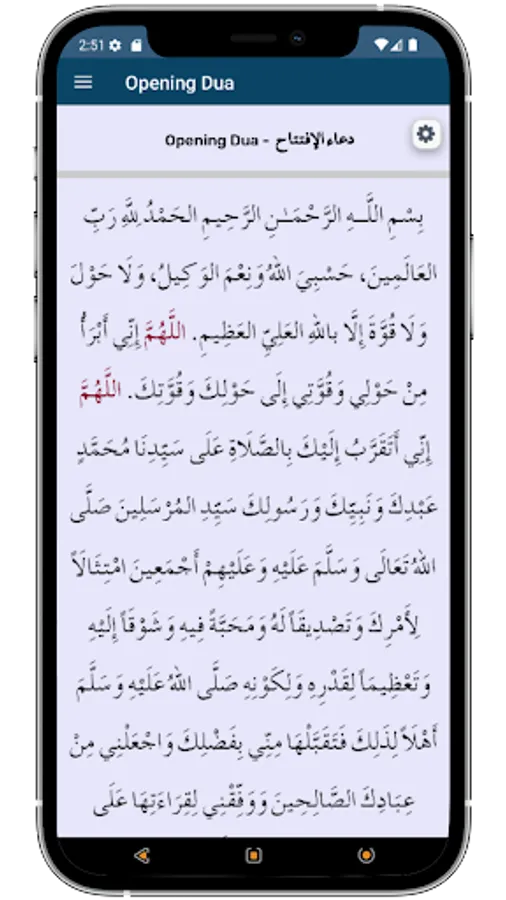 2:51
Opening Dua
Opening Dua - دعاء الإفتتاح
بِسْمِ اللَّـهِ الرَّحْمَـٰنِ الرَّحِيمِ الحَمْدُ لِلَّهِ رَبِّ
العَالَمِينَ، حَسْبِيَ اللهُ وَنِعْمَ الوَكِيلُ، وَلَا حَوْلَ
وَلَا قُوَّةَ إِلَّا بِاللهِ العَلِيِّ العَظِيمِ. اللَّهُمَّ إِنِّي أَبْرَأُ
مِنْ حَوْلِي وَقُوَّتِي إِلَى حَوْلِكَ وَقُوَّتِكَ. اللَّهُمَّ
إِنِّي أَتَقَرَّبُ إِلَيْكَ بِالصَّلَاةِ عَلَى سَيِّدِنَا مُحَمَّدٍ
عَبْدِكَ وَنَبِيِّكَ وَرَسُولِكَ سَيِّدِ المُرْسَلِينَ صَلَّى
اللهُ تَعَالَى وَسَلَّمَ عَلَيْهِ وَعَلَيْهِمْ أَجْمَعِينَ امْتِثَالَاً
لِأَمْرِكَ وَتَصْدِيقَاً لَهُ وَمَحَبَّةً فِيهِ وَشَوْقَاً إِلَيْهِ
وَتَعْظِيمَاً لِقَدْرِهِ وَلِكَوْنِهِ صَلَّى اللهُ عَلَيْهِ وَسَلَّمَ
أَهْلَاً لِذَلِكَ فَتَقَبَّلْهَا مِنِّي بِفَضْلِكَ وَاجْعَلْنِي مِنْ
عِبَادِكَ الصَّالِحِينَ وَوَفِّقْنِي لِقِرَاءَتِهَا عَلَى